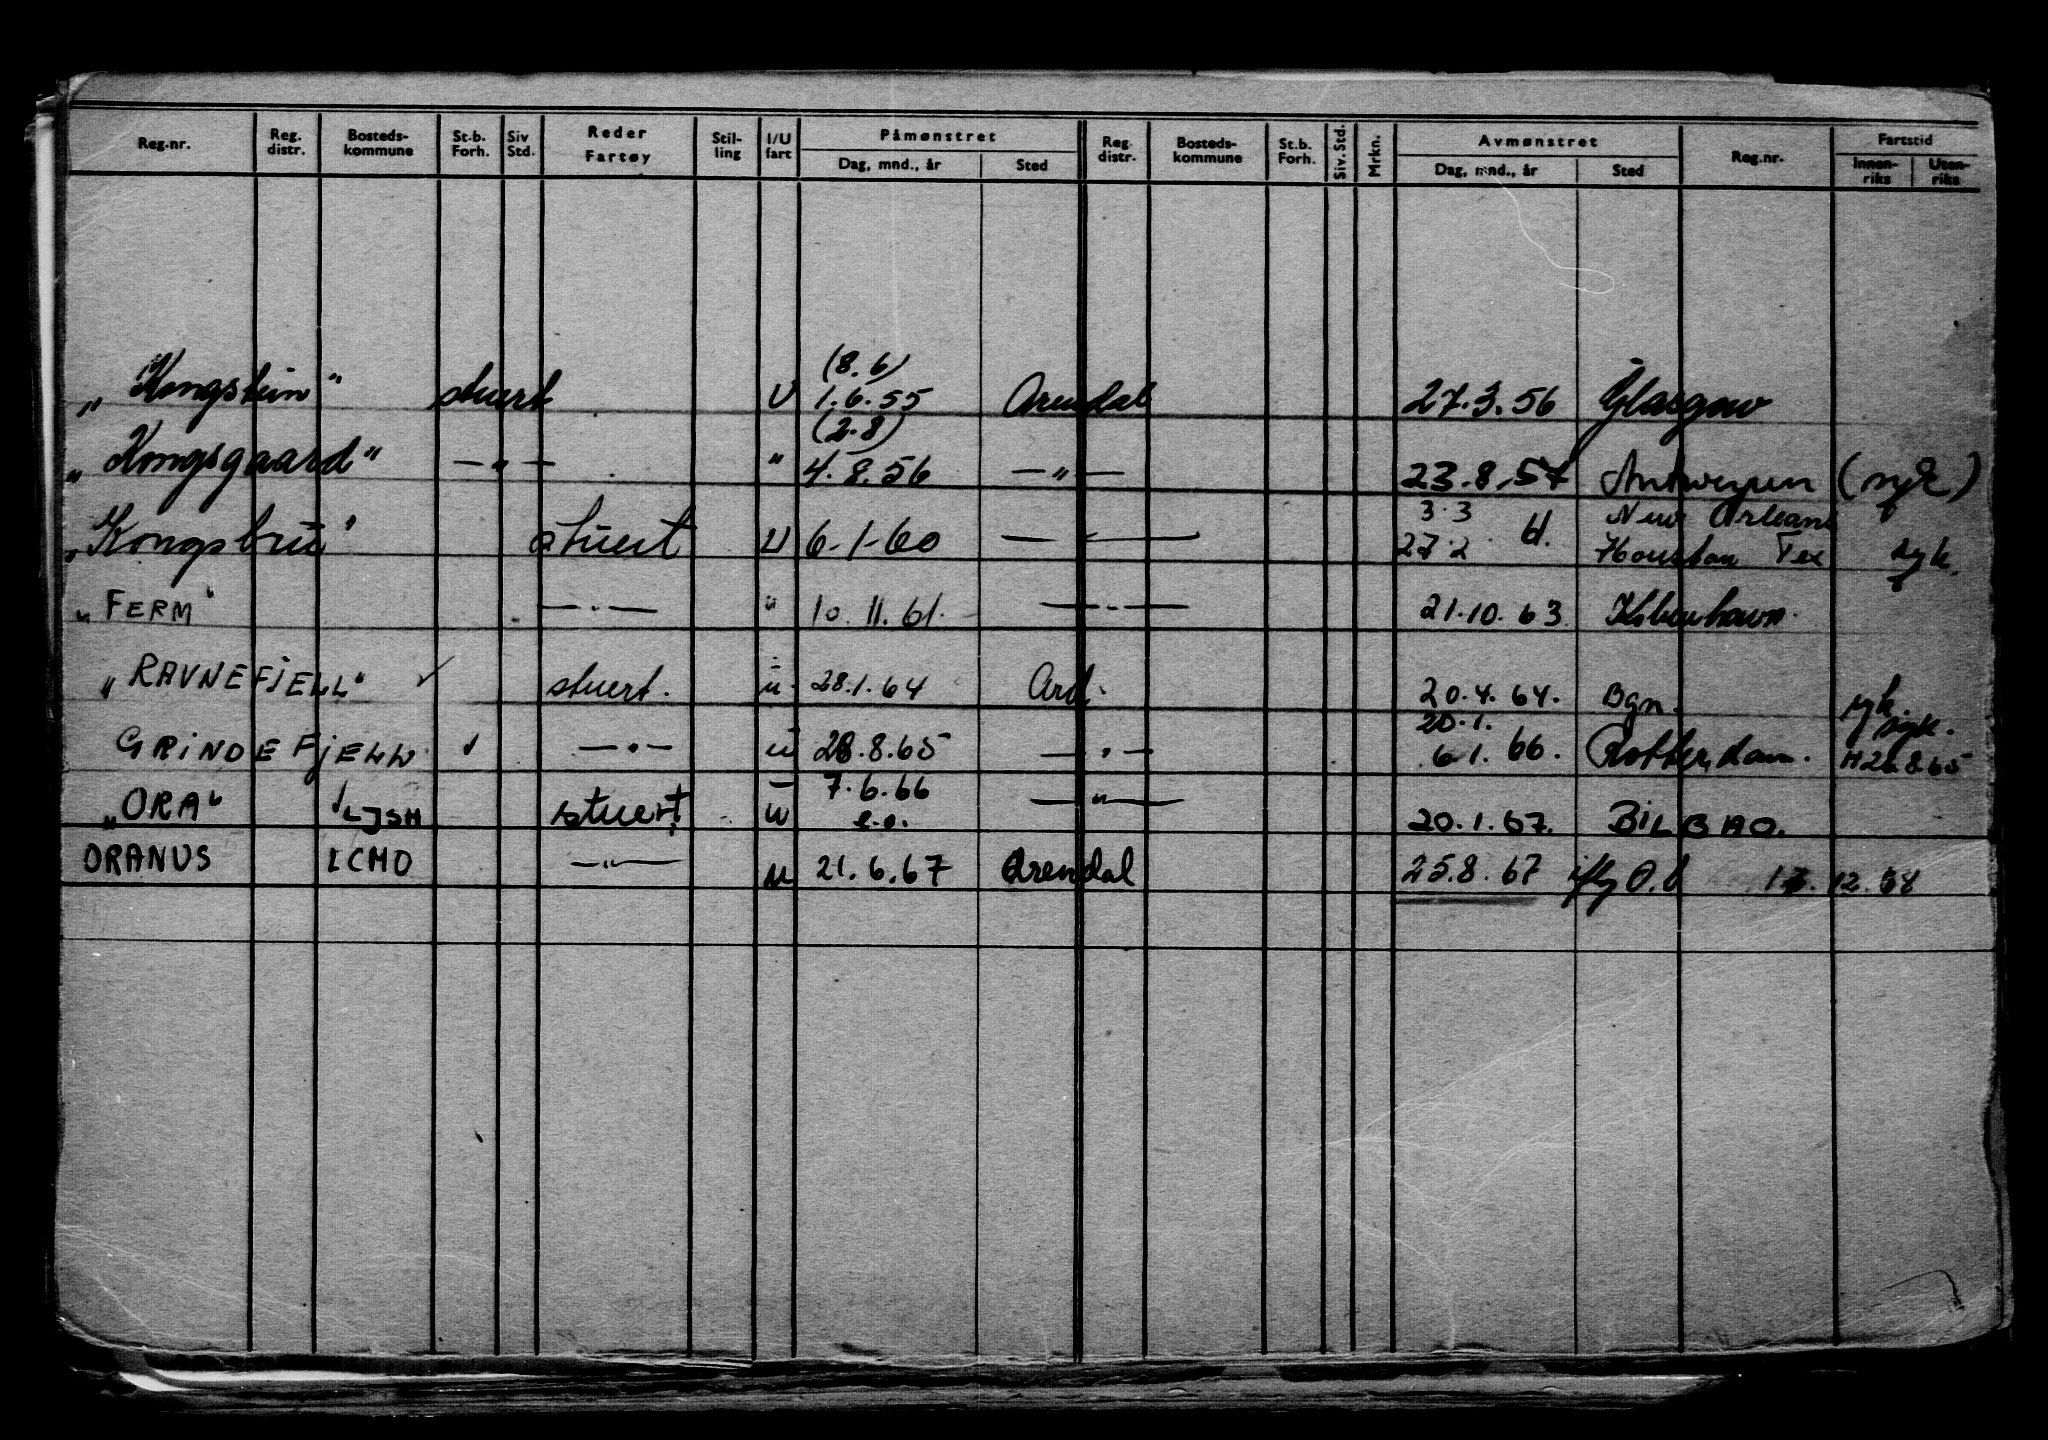 Reg.nr. Reg. distr. Bosteds-kommune St.b. Forh. Siv Std. Reder Fartøy Stil-ling I/U fart Påmønstret Dag, mnd., år Sted Reg. distr. Bosteds-kommune St.b. Forh. Siv. Std. Mrkn. Avmønstret Dag, mnd., år Sted Reg.nr. Fartstid Innen-riks Uten-riks
(8.6)
„Kongstein" stuert U 1.6.55 Arendal 27.3.56 Glasgow
(2.8)
„Kongsgaard" —„— " 4.8.56 —„— 23.8.57 Antwerpen (syk)
3.3 New Orleans
„Kongsbru" stuert U 6-1-60 —"— 27.2 61. Houston Tex syk.
„FERM" —"— " 10.11.61. —"— 21.10.63 København.
„RAVNEFJELL" ✓ stuert. u. 28.1.64 Ard. 20.4.64. Bgn. syk.
20.1. syk.
GRINDEFJELL ✓ —"— u 28.8.65 —"— 6.1.66. Rotterdam. H 26.8.65
7.6.66
„ORA" LJSH stuert u e.o. —"— 20.1.67. BILBAO.
ORANUS LCMO —"— u 21.6.67 Arendal 25.8.67 iflg O.b 12.68